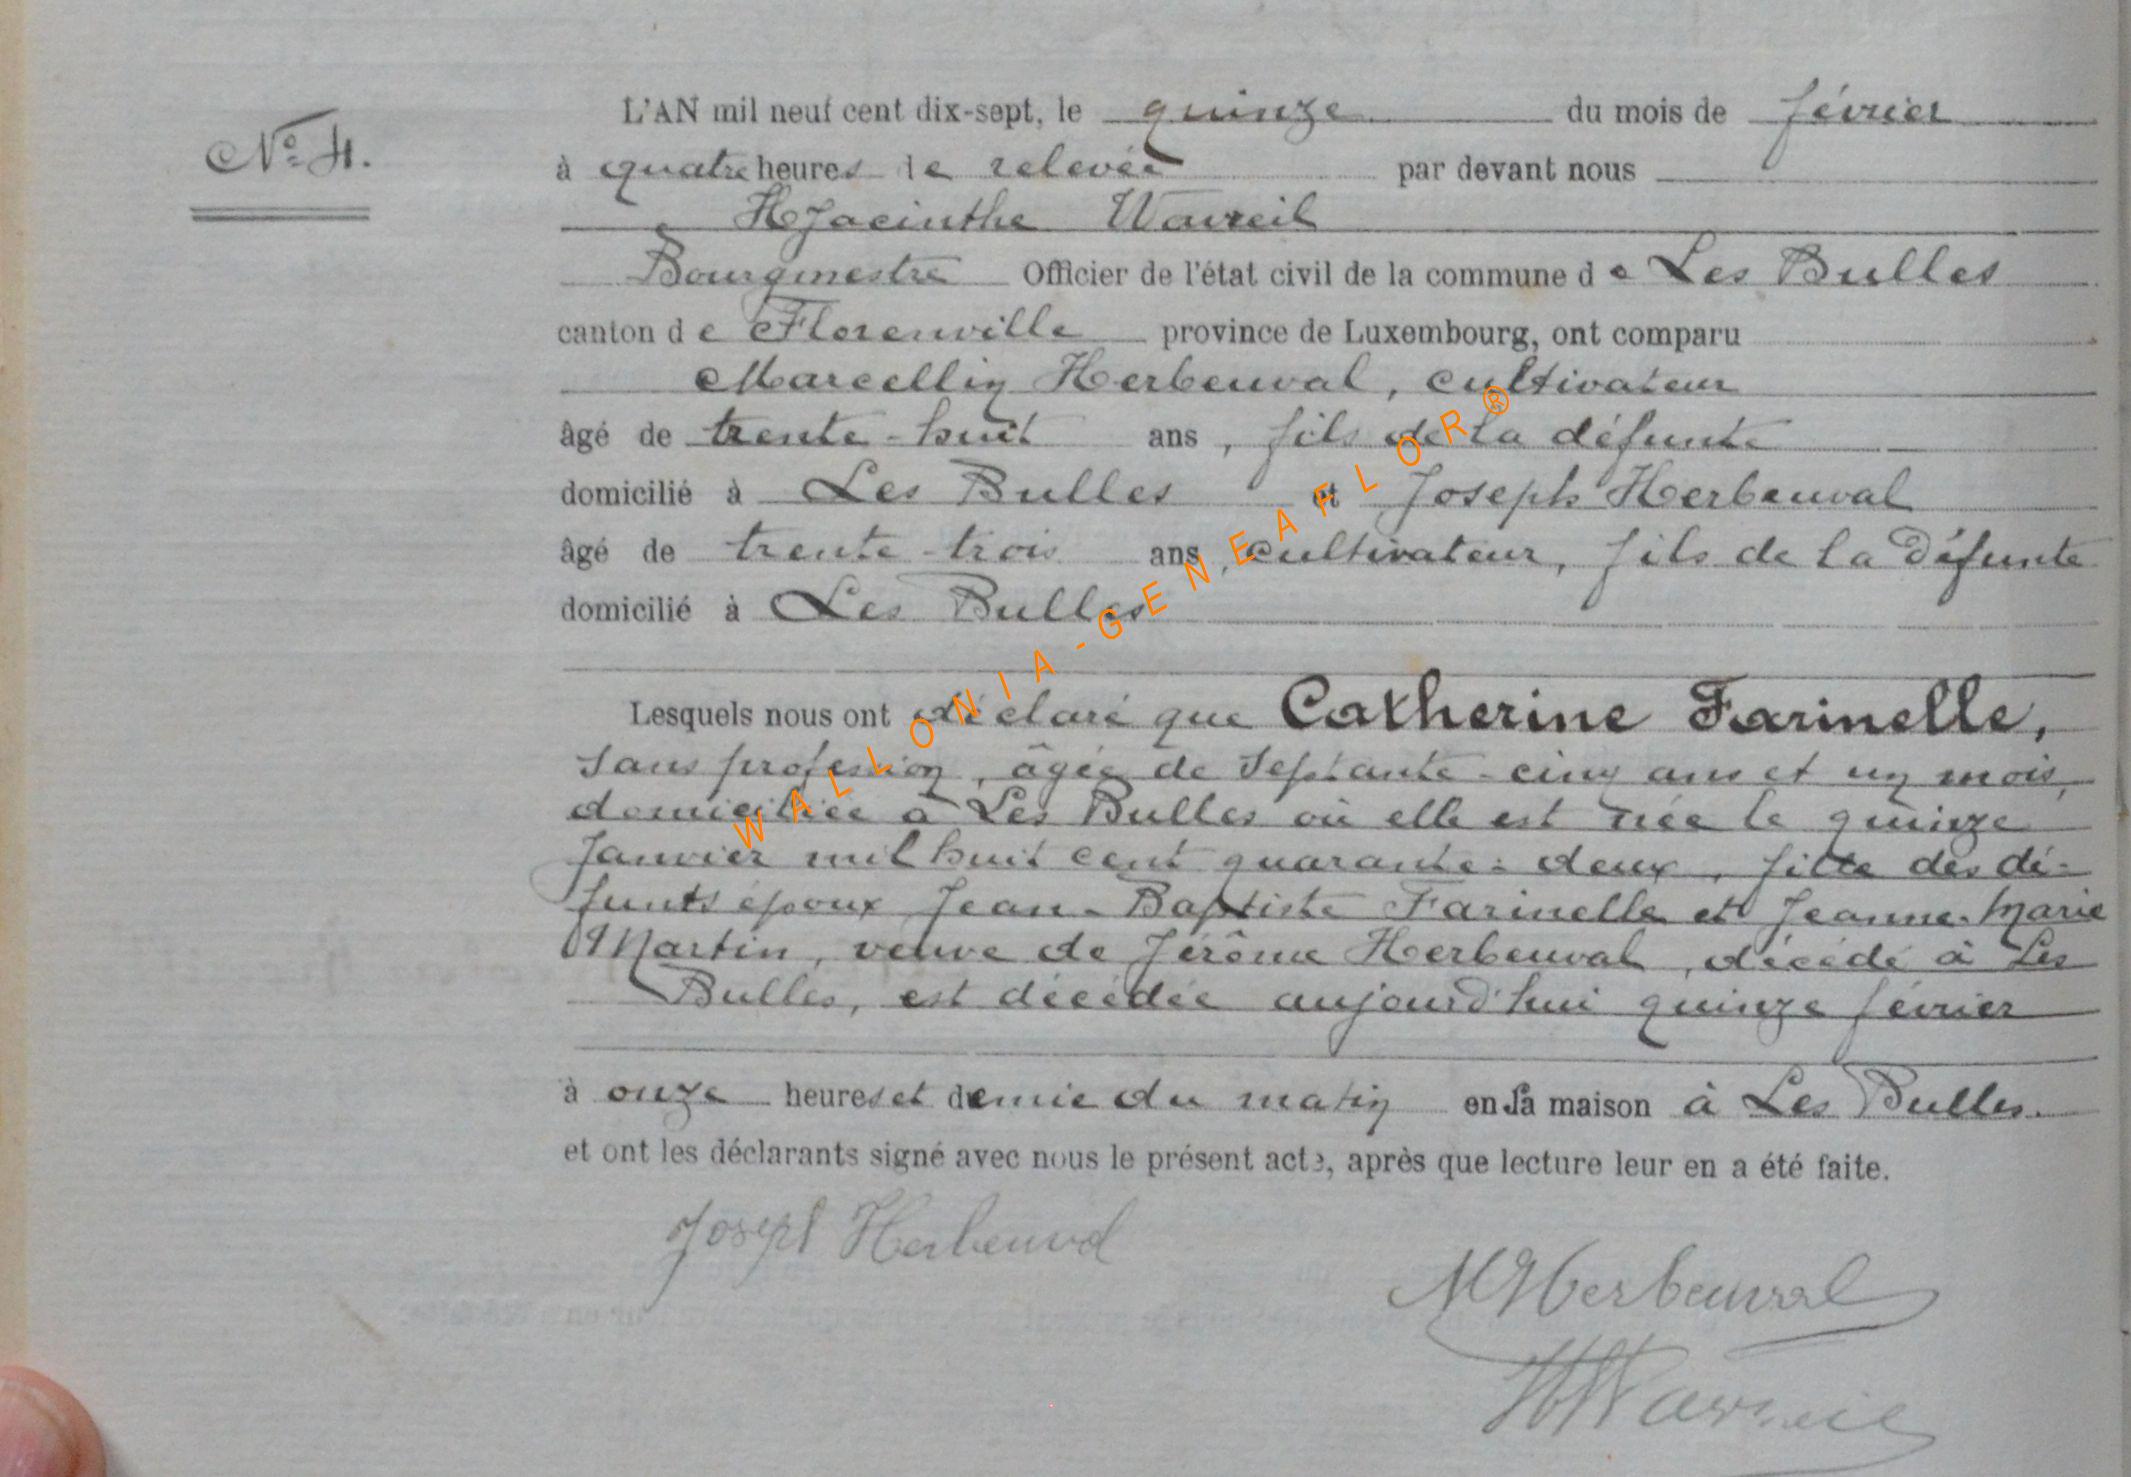 N° 4.
L'AN mil neuf cent dix-sept, le quinze du mois de février
à quatre heures de relevée par devant nous
Hyacinthe Wavreil
Bourgmestre Officier de l'état civil de la commune de Les Bulles
canton de Florenville province de Luxembourg, ont comparu
Marcellin Herbeuval, cultivateur
âgé de trente-huit ans, fils de la défunte
domicilié à Les Bulles et Joseph Herbeuval
âgé de trente-trois ans, cultivateur, fils de la défunte
domicilié à Les Bulles
Lesquels nous ont déclaré que Catherine Farinelle,
sans profession, âgée de septante-cinq ans et un mois,
domiciliée à Les Bulles où elle est née le quinze
Janvier mil huit cent quarante-deux, fille des dé-
funts époux Jean-Baptiste Farinelle et Jeanne-Marie
Martin, veuve de Jérôme Herbeuval, décédé à Les
Bulles, est décédée aujourd'hui quinze février
à onze heures et demie du matin en sa maison à Les Bulles.
et ont les déclarants signé avec nous le présent acte, après que lecture leur en a été faite.
Joseph Herbeuval
M Herbeuval
H Wavreil
WALLONIA-GENEAFLOR®